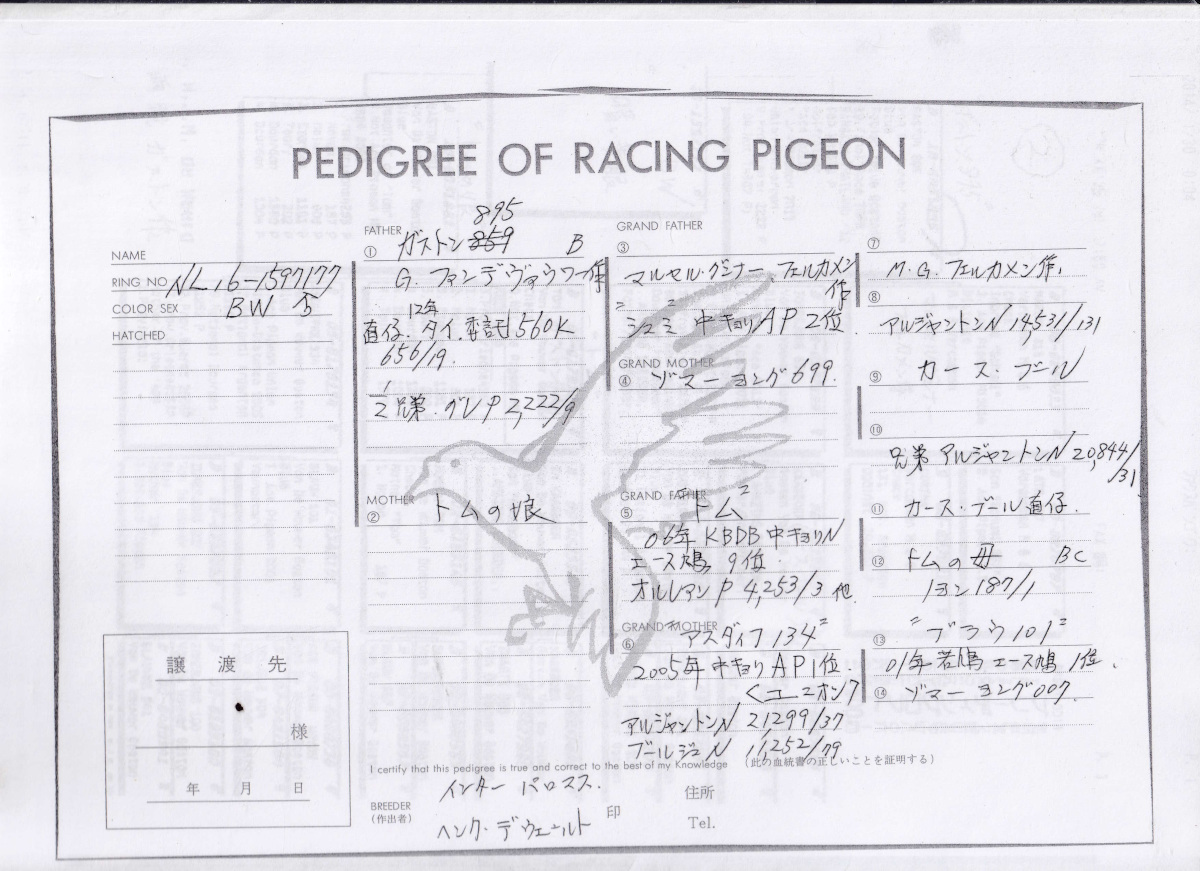 PEDIGREE OF RACING PIGEON
NAME
RING NO NL16-1597177
COLOR SEX BW
HATCHED
FATHER
① ガストン 859 895 B
G. ファンデヴァウワー作
12年
直仔. タイ. 委託 560K
656/19.
〃 2,222/9
MOTHER
② トムの娘
GRAND FATHER
③ マルセル・ フェルカメン
作
〃 〃
中キョリ AP 2位
GRAND MOTHER
④ ゾマーヨング 699.
GRAND FATHER
⑤ "トム"
06年 KBDB 中キョリN
エース鳩 9位
オルレアンP 4,253/3 他
GRAND MOTHER
⑥ "アスダイフ 134"
2005年 中キョリ AP 1位
<ユニオン>
アルジャントンN 21,299/37
ブールジュN 11,252/79
⑦ M.G. フェルカメン作.
⑧ アルジャントンN 14,531/131
⑨ カース・ブール
⑩
兄弟 アルジャントンN 20,844/31
⑪ カース・ブール直仔.
⑫ トムの母 BC
187/1
⑬ "ブラウ101"
01年若鳩エース鳩 1位.
⑭ ゾマーヨング007.
譲渡先
様
年 月 日
I certify that this pedigree is true and correct to the best of my Knowledge (此の血統書の正しいことを証明する)
BREEDER
(作出者)
インター パロマス.
ヘンク・デウェールト
印
住所
Tel.